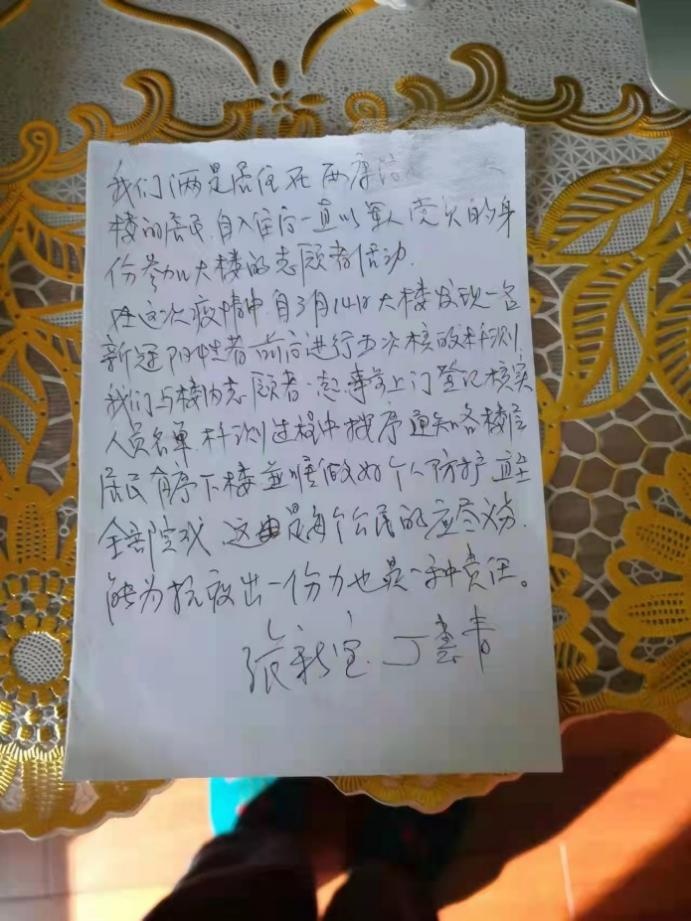 我们俩是居住在西康
楼的居民.自入住后一直以军人党员的身
份参加大楼的志愿者活动.
在这次疫情中.自3月14日大楼发现一名
新冠阳性者前后进行五次核酸检测
我们与楼内志愿者.事前上门登记核实
人员名单.检测过程中按序通知各楼层
居民有序下楼並做好个人防护直至
全部完成 这是每个公民的应尽义务.
能为抗疫出一份力也是一种责任。
张新宜.丁